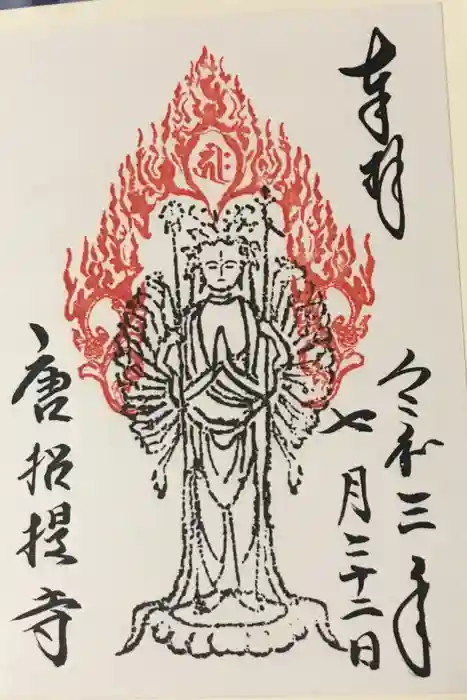 奉拝
令和三年
七月二十二日
唐招提寺